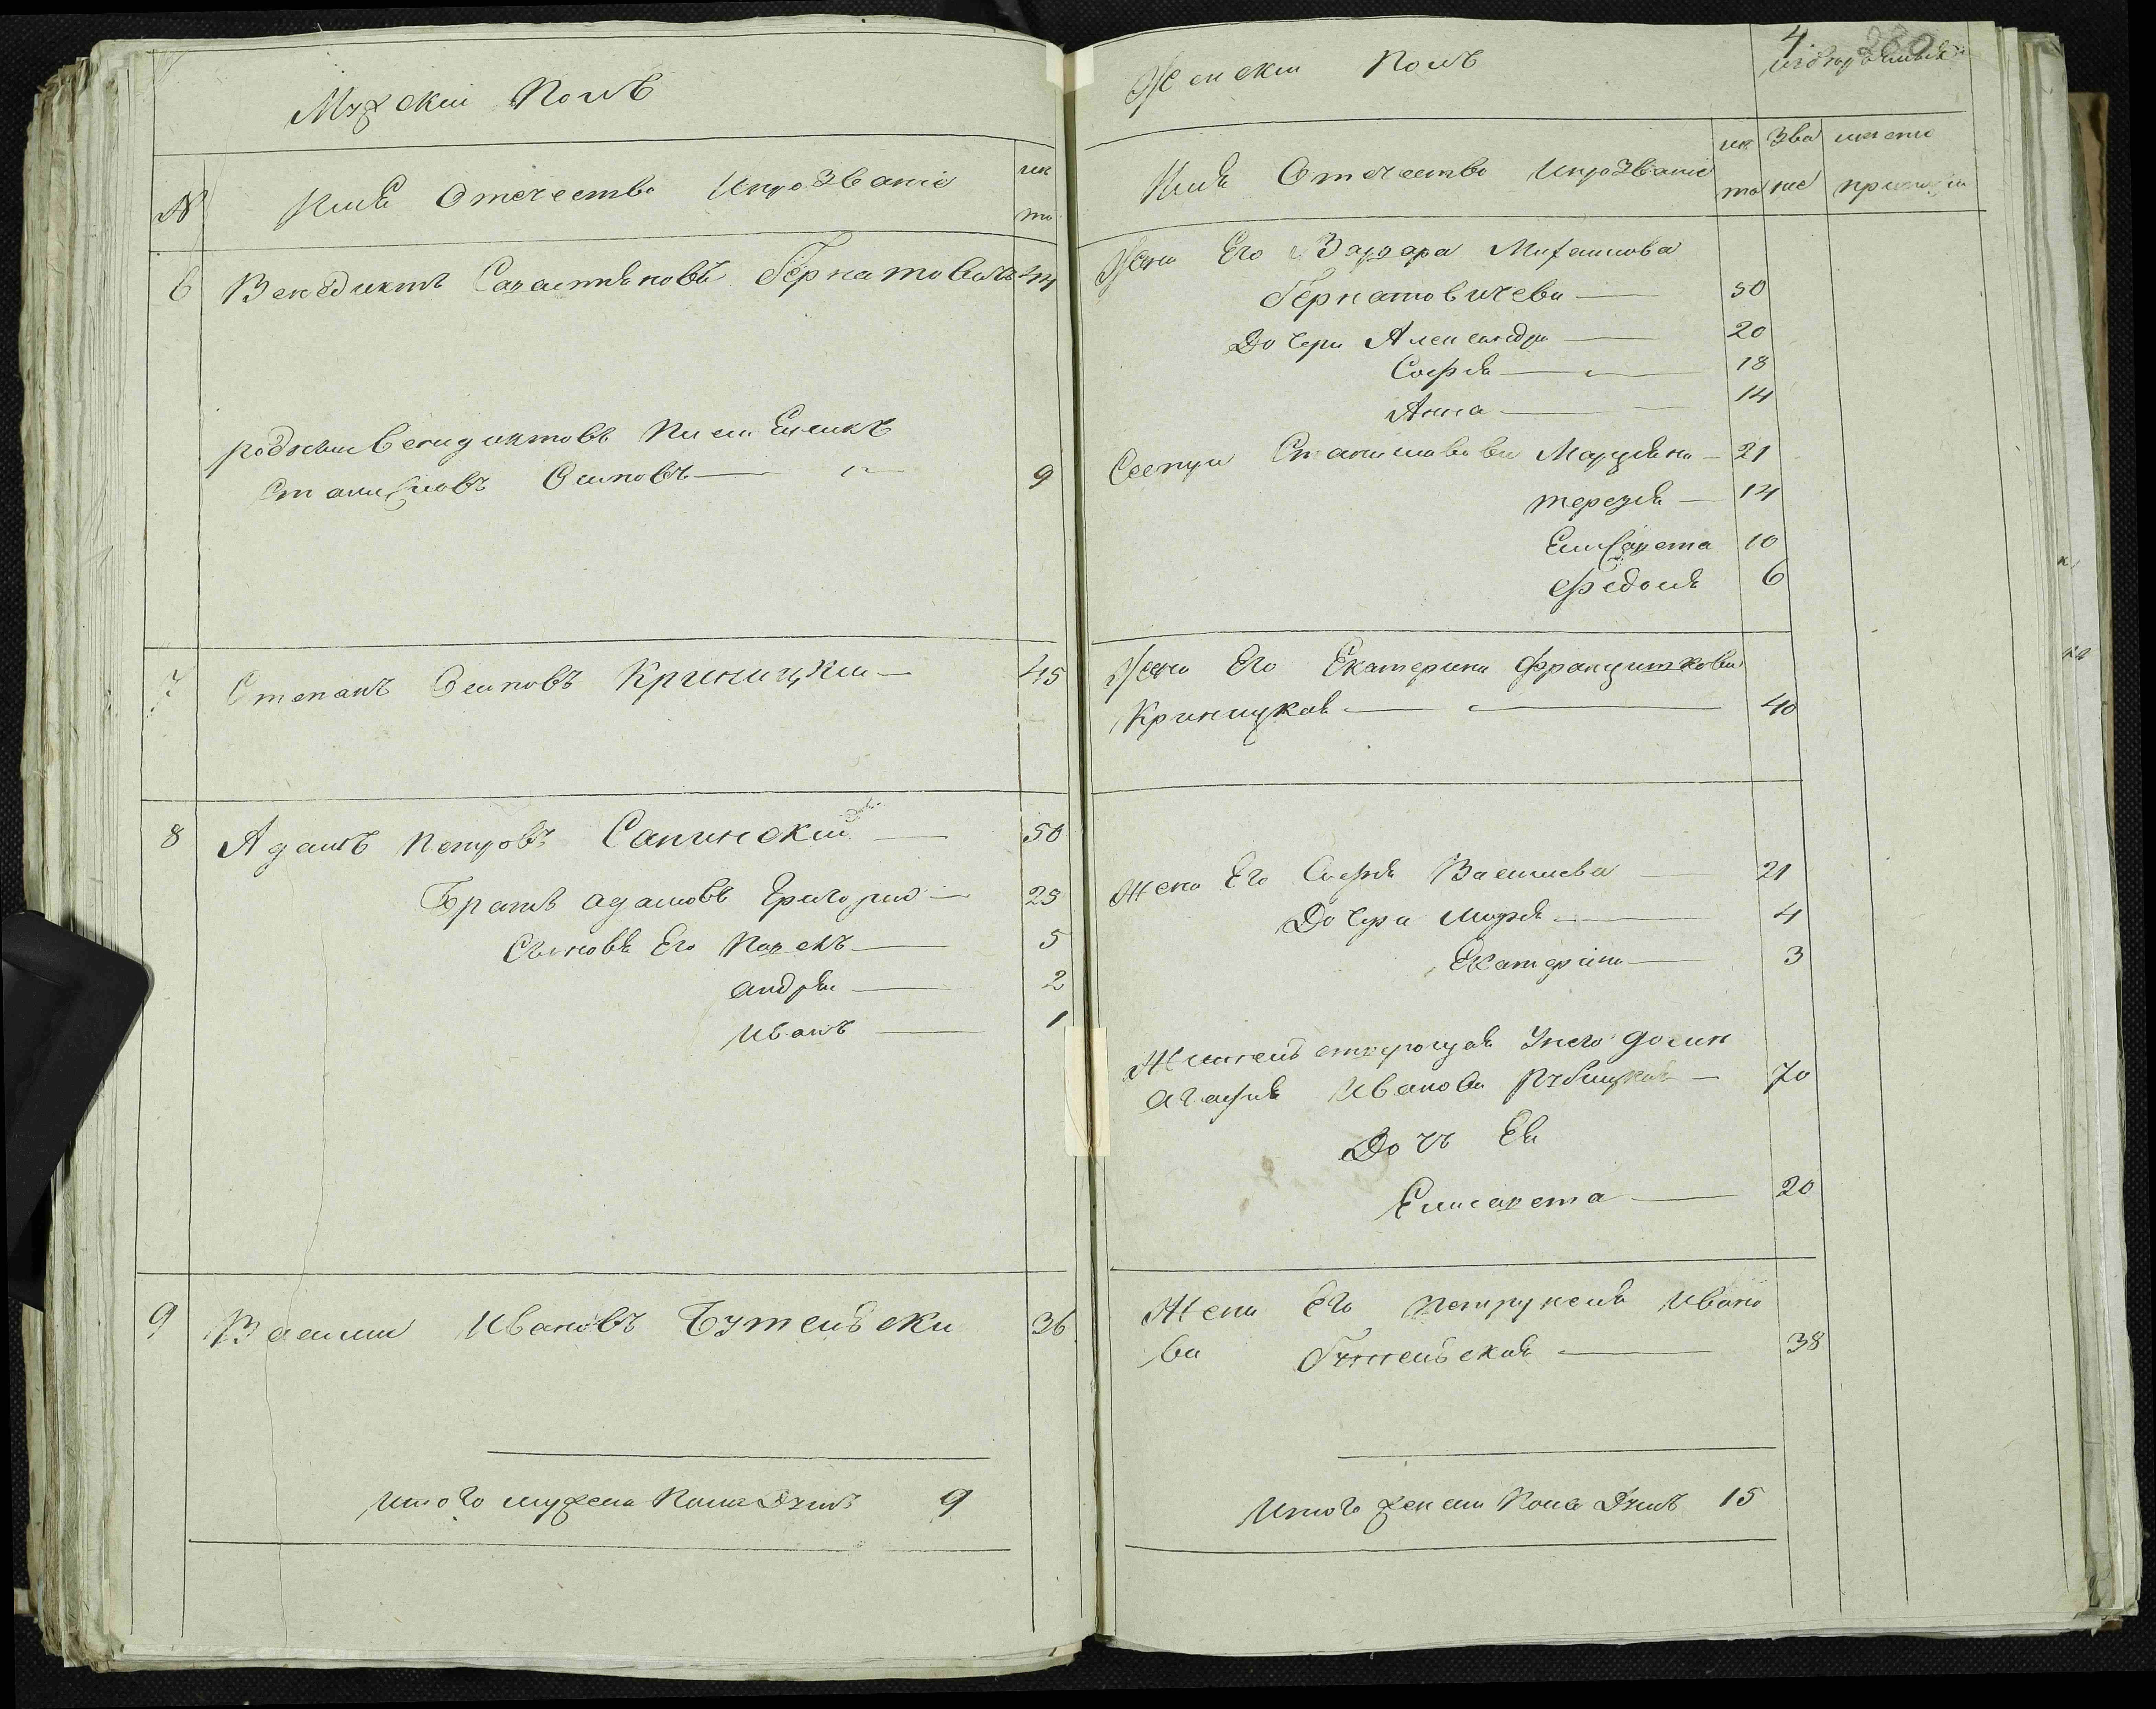 Мужскии Полъ
N Имя Отечество Ипрозвание лета
6 Венедиктъ Савастяновъ Гернатовичъ 44
родным Венидиктовъ
Станиславъ Осиповъ 9
7 Степанъ Осиповъ Криницкии 45
8 Адамъ Петровъ Сапинский 50
Братъ адамовъ Григорио 25
Сыновя Его Павелъ 5
андреи 2
Иванъ 1
9 Василии Ивановъ Бутенвски 36
Итого мужска Пола Душъ 9
4. 280
Женскии Полъ
Имя Отечество Ипрозвание лета Звание
Жена Его Варвара Михаилова
Гернатовичева 50
Дочери Александра 20
Софя 18
Анна 14
Сестры Станиславовы Марцяна 21
терезя 14
Елисавета 10
Федоня 6
Жена Его Екатерина Францишкова
Криницкая 40
Жена Его Софя Василиева 21
Дочери Маря 4
Екатерина 3
Унего
агафия Иванова 70
Дочь Ея
Елисавета 20
Жена Его петрунеля Ивано
ва Бутенвская 38
Итого женски Пола Душъ 15